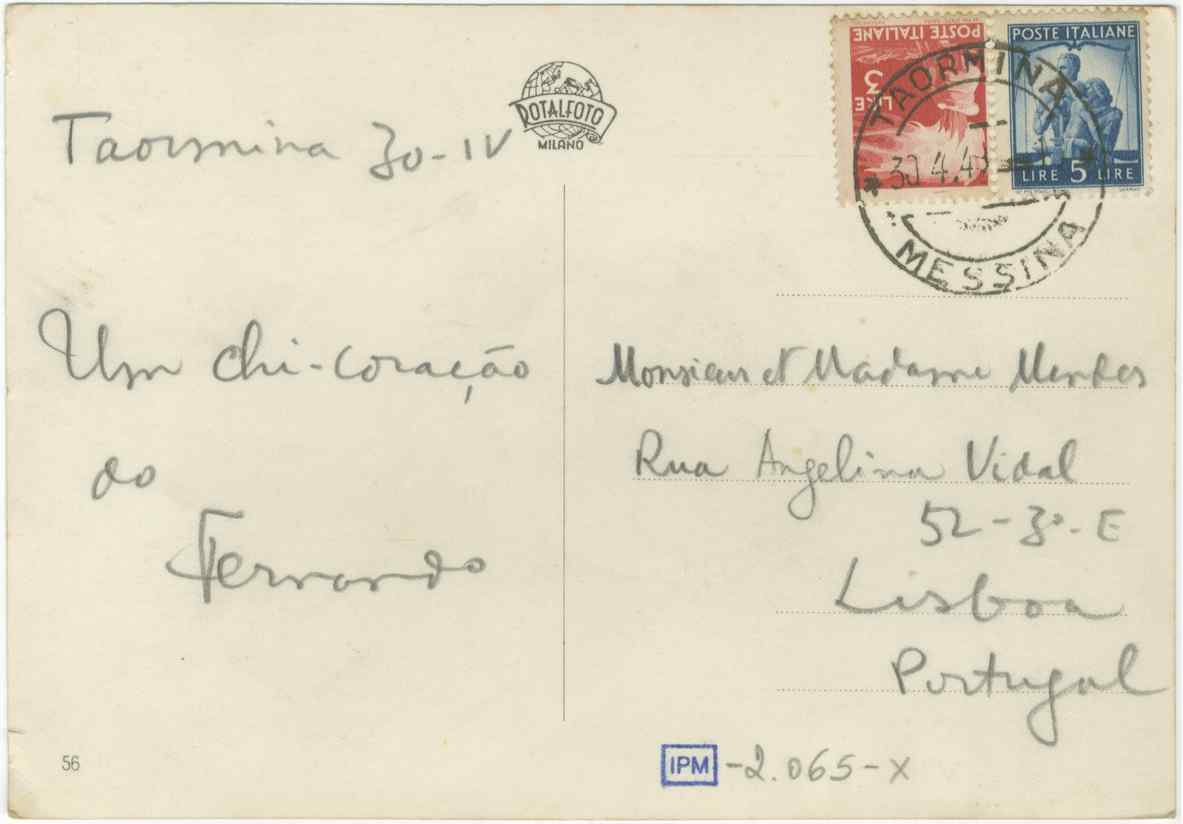 ROTALFOTO
MILANO
Taormina 30-IV
Um chi-coração
do
Fernando
56
POSTE ITALIANE
LIRE 3
POSTE ITALIANE
LIRE 5 LIRE
TAORMINA
MESSINA
Monsieur et Madame Mendes
Rua Angelina Vidal
52-3º-E
Lisboa
Portugal
IPM -2.065-X